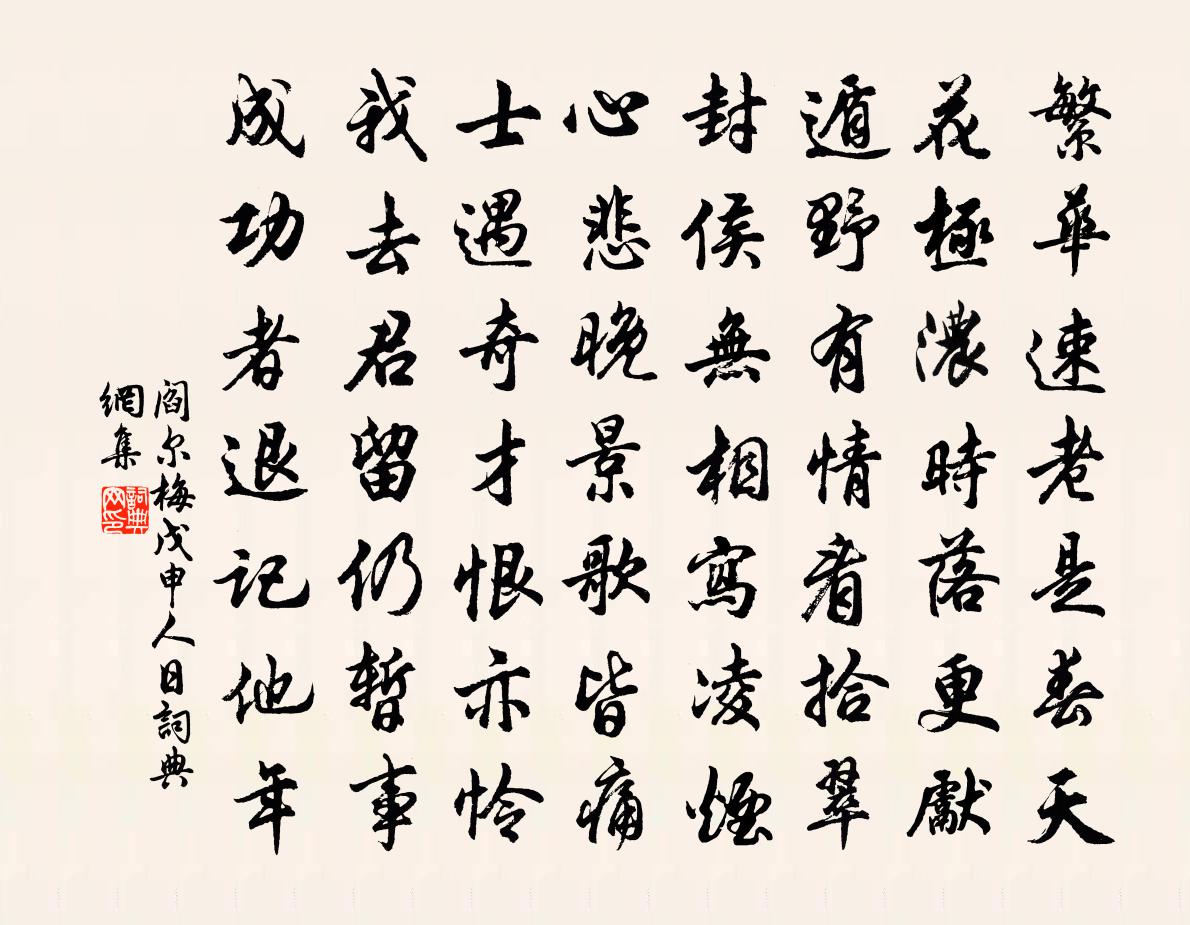 繁華速老是春天
花極濃時落更獻
遁野有情看拾翠
封侯無相寫凌煙
心悲晚景歌皆痛
士遇奇才恨亦怜
我去君留仍暫事
成功者退記他年
閻尔梅戊申人日詞典
網集
詞典
网印